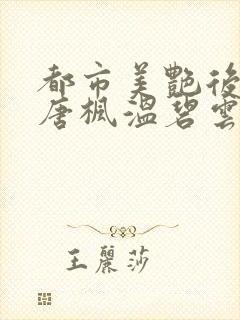 都市美艷後
唐楓溫碧雲
王麗莎